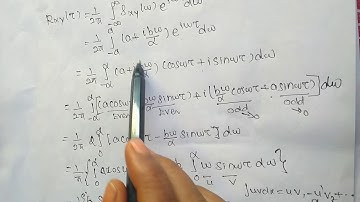 Rxy(τ) = 1/2π ∫_{-∞}^{∞} Sxy(ω) e^{iωτ} dω
= 1/2π ∫_{-α}^{α} (a + ibω/α) e^{iωτ} dω
= 1/2π ∫_{-α}^{α} (a + ibω/α) (cosωτ + i sinωτ) dω
= 1/2π ∫_{-α}^{α} [(a cosωτ - bω/α sinωτ) + i(bω/α cosωτ + a sinωτ)] dω
even even odd → 0 odd → 0
= 1/2π 2 ∫_{0}^{α} [a cosωτ - bω/α sinωτ] dω
= 1/π { ∫_{0}^{α} a cosωτ ∫_{0}^{α} ω sinωτ dω }
u v
∫uv dx = uv₁ - u'v₂ + ...